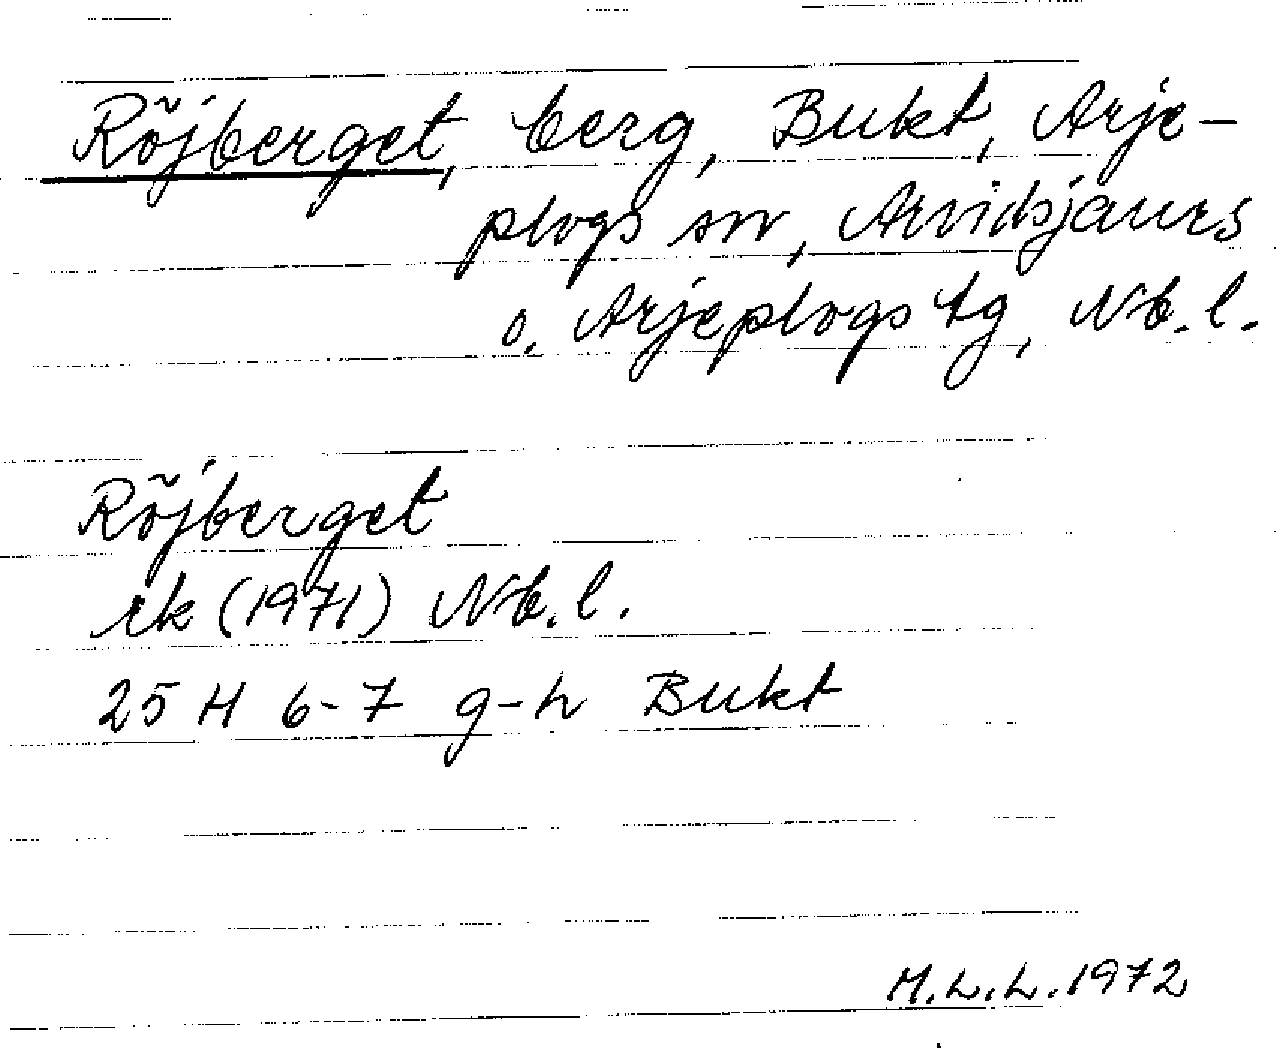 Röjberget, berg, Bukt, Arje-
plogs sn, Arvidsjaurs
o. Arjeplogs tg, Nb. l.
Röjberget
rk (1971) Nb. l.
25 H 6-7 g-h Bukt
M.L.L. 1972